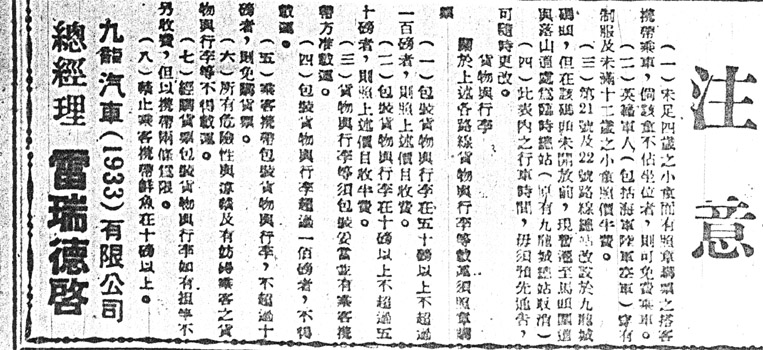 注意
(一)未足四歲之小童而有照章購票之搭客
攜帶乘車，倘該童不佔坐位者，則可免費乘車。
(二)英籍軍人(包括海軍陸軍空軍)穿有
制服及未滿十二歲之小童照價牛費。
(三)第21號及22號路線總站改設於九龍城
碼頭，但在該碼頭未開放前，現暫遷至馬頭圍道
與落山道處爲臨時總站(原有九龍城總站取消)
(四)此表内之行車時間，毋須預先通告，
可隨時更改。
貨物與行李
關於上述各路線貨物與行李等載運須照章購
票
(一)包裝貨物與行李在五十磅以上不超過
一百磅者，則照上述價目收費。
(二)包裝貨物與行李在十磅以上不超過五
十磅者，則照上述價目收牛費。
(三)貨物與行李等須包裝妥當並有乘客攜
帶方准載運。
(四)包裝貨物與行李超過一佰磅者，不得
載運。
(五)乘客攜帶包裝貨物與行李，不超過十
磅者，則免購貨票。
(六)所有危險性與凟穢及有妨碍乘客之貨
物與行李等不得載運。
(七)經購貨票包裝貨物與行李如有担竿不
另收費，但以攜帶兩條爲限。
(八)禁止乘客攜帶鮮魚在十磅以上。
九龍汽車(1933)有限公司
總經理 雷瑞德啓